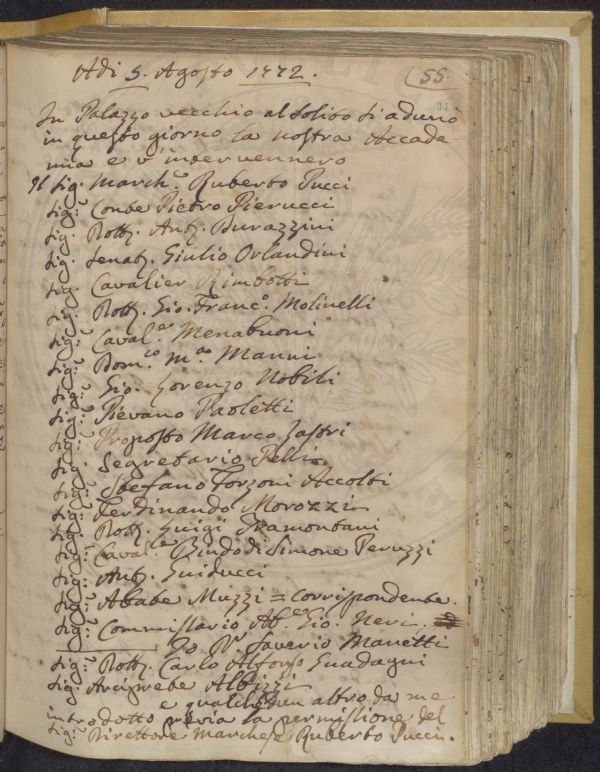 Adi 5. Agosto 1772.
55
31
In Palazzo vecchio al solito si adunò
in questo giorno la nostra Accade-
mia e v'intervennero
Il Sig. March.e Ruberto Pucci
Sig.r Conte Pietro Pierucci
Sig. Dott. Ant. Durazzini
Sig. Senat. Giulio Orlandini
Sig. Cavalier Rimbotti
Sig. Dott. Gio. Franc.o Molinelli
Sig.r Caval.er Menabuoni
Sig.r Dom.co M.a Manni
Sig.r Gio. Lorenzo Nobili
Sig.r Pievano Paoletti
Sig.r Proposto Marco Lastri
Sig. Segretario Pelli
Sig.r Stefano Forzoni Accolti
Sig.r Ferdinando Morozzi
Sig. Dott. Luigi Tramontani
Sig.r Caval.re Bindo di Simone Peruzzi
Sig.r Ant. Guiducci
Sig.r Abate Muzzi = Corrispondente.
Sig.r Commissario Ab.e Gio. Neri.
Io D.r Saverio Manetti
Sig.r Dott. Carlo Alfonso Guadagni
Sig. Arciprete Albizzi
e qualchedun altro da me
introdotto previa la permissione del
Sig.r Direttore Marchese Ruberto Pucci.